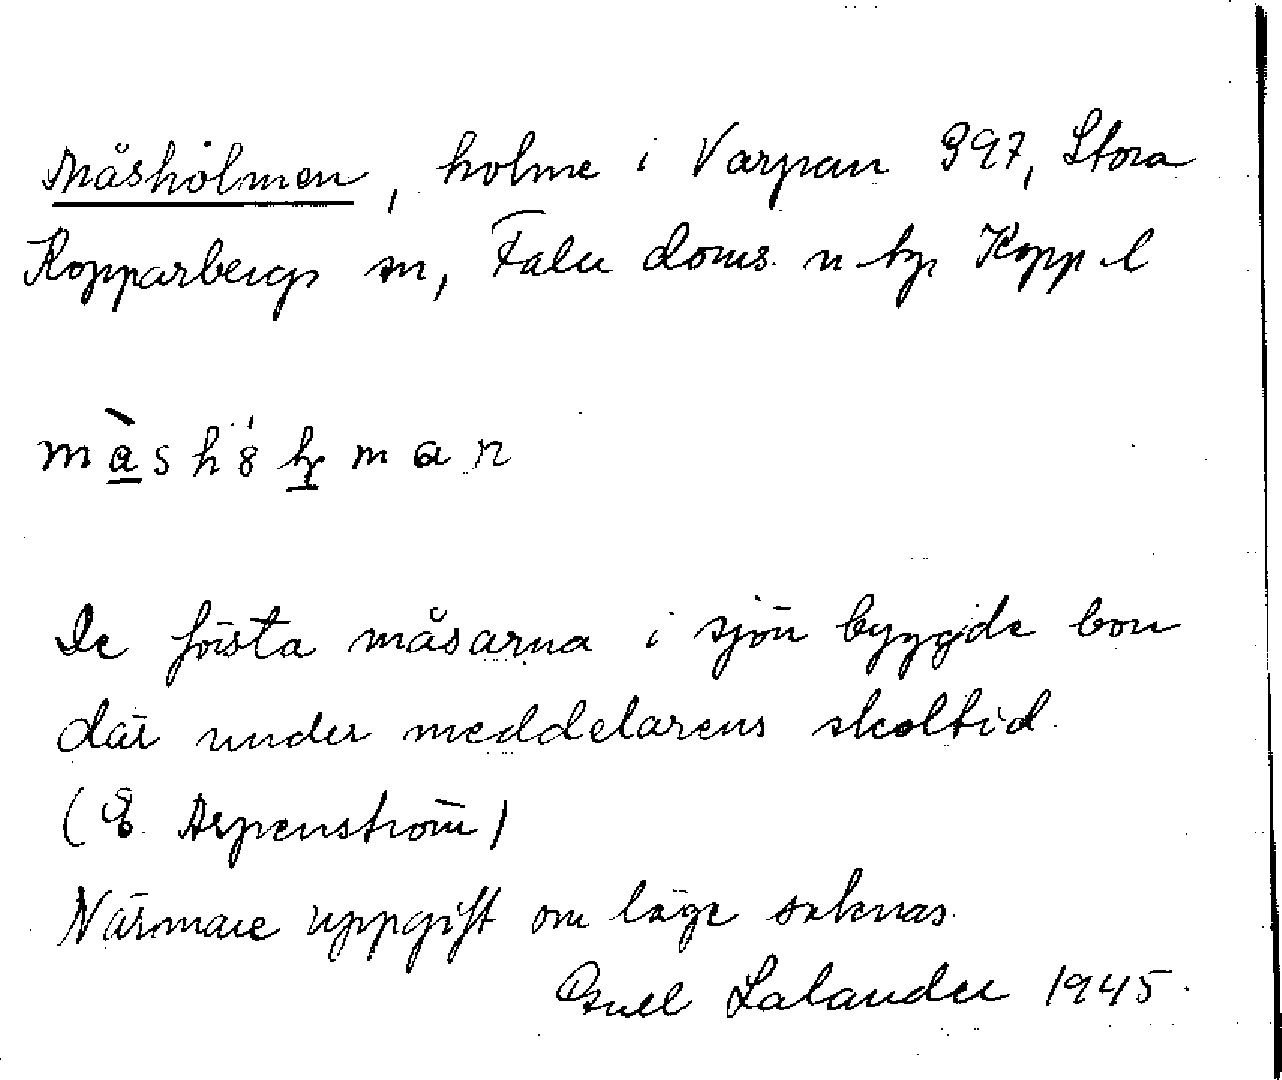 Måsholmen, holme i Varpan 397, Stora
Kopparbergs sn, Falu doms. n tg Kopp. l
De första måsarna i sjön byggde bon
där under meddelarens skoltid.
(E. Aspenström)
Närmare uppgift om läge saknas.
Lalander 1945.